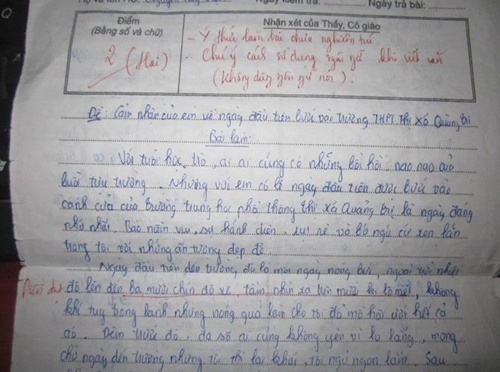 Ngày kiểm tra:
Ngày trả bài:
Điểm
(Bằng số và chữ)
Nhận xét của Thầy, Cô giáo
2 (Hai)
- Ý thức làm bài chưa nghiêm túc
- Chú ý cách sử dụng ngôn ngữ khi viết văn
(không dùng ngôn ngữ nói).
Đề: Cảm nhận của em về ngày đầu tiên bước vào trường THPT Thị Xã Quảng Trị
Bài làm:
Với tuổi học trò, ai ai cũng có những bồi hồi, nao nao của
buổi tựu trường. Nhưng với em có lẽ ngày đầu tiên được bước vào
cánh cửa của trường trung học phổ thông thị xã Quảng Trị là ngày đáng
nhớ nhất. Bao niềm vui, sự hãnh diện, sự và bỡ ngỡ cứ xen lẫn
trong tôi với những ấn tượng đẹp đẽ.
Ngày đầu tiên đến trường, đó là một ngày nóng bức, ngoài trời nhiệt
độ lên đến ba mươi chín độ xê, tầm nhìn xa trên mười ki lô mét, không
khí tuy trong lành nhưng nóng quá làm cho tôi đổ mồ hôi ướt hết cả
áo. Đêm trước đó, đa số ai cũng không yên vì lo lắng, mong
chờ ngày đến trường nhưng tôi thì lại khác, tôi ngủ ngon lắm. Sau